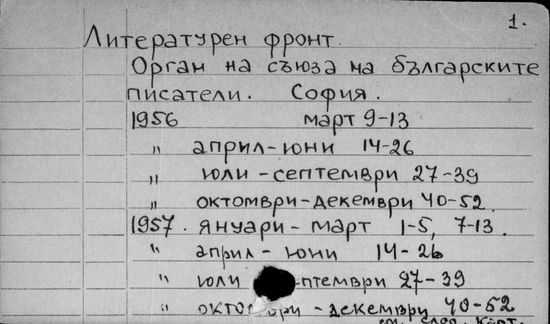 1.
Литературен фронт.
Орган на съюза на българските
писатели. София.
1956 март 9-13
" април-юни 14-26
" юли-септември 27-39
" октомври-декември 40-52
1957. януари - март 1-5, 7-13
" април - юни 14-26
" юли птември 27-39
" октом ври - декември 40-52
см. след. карт.